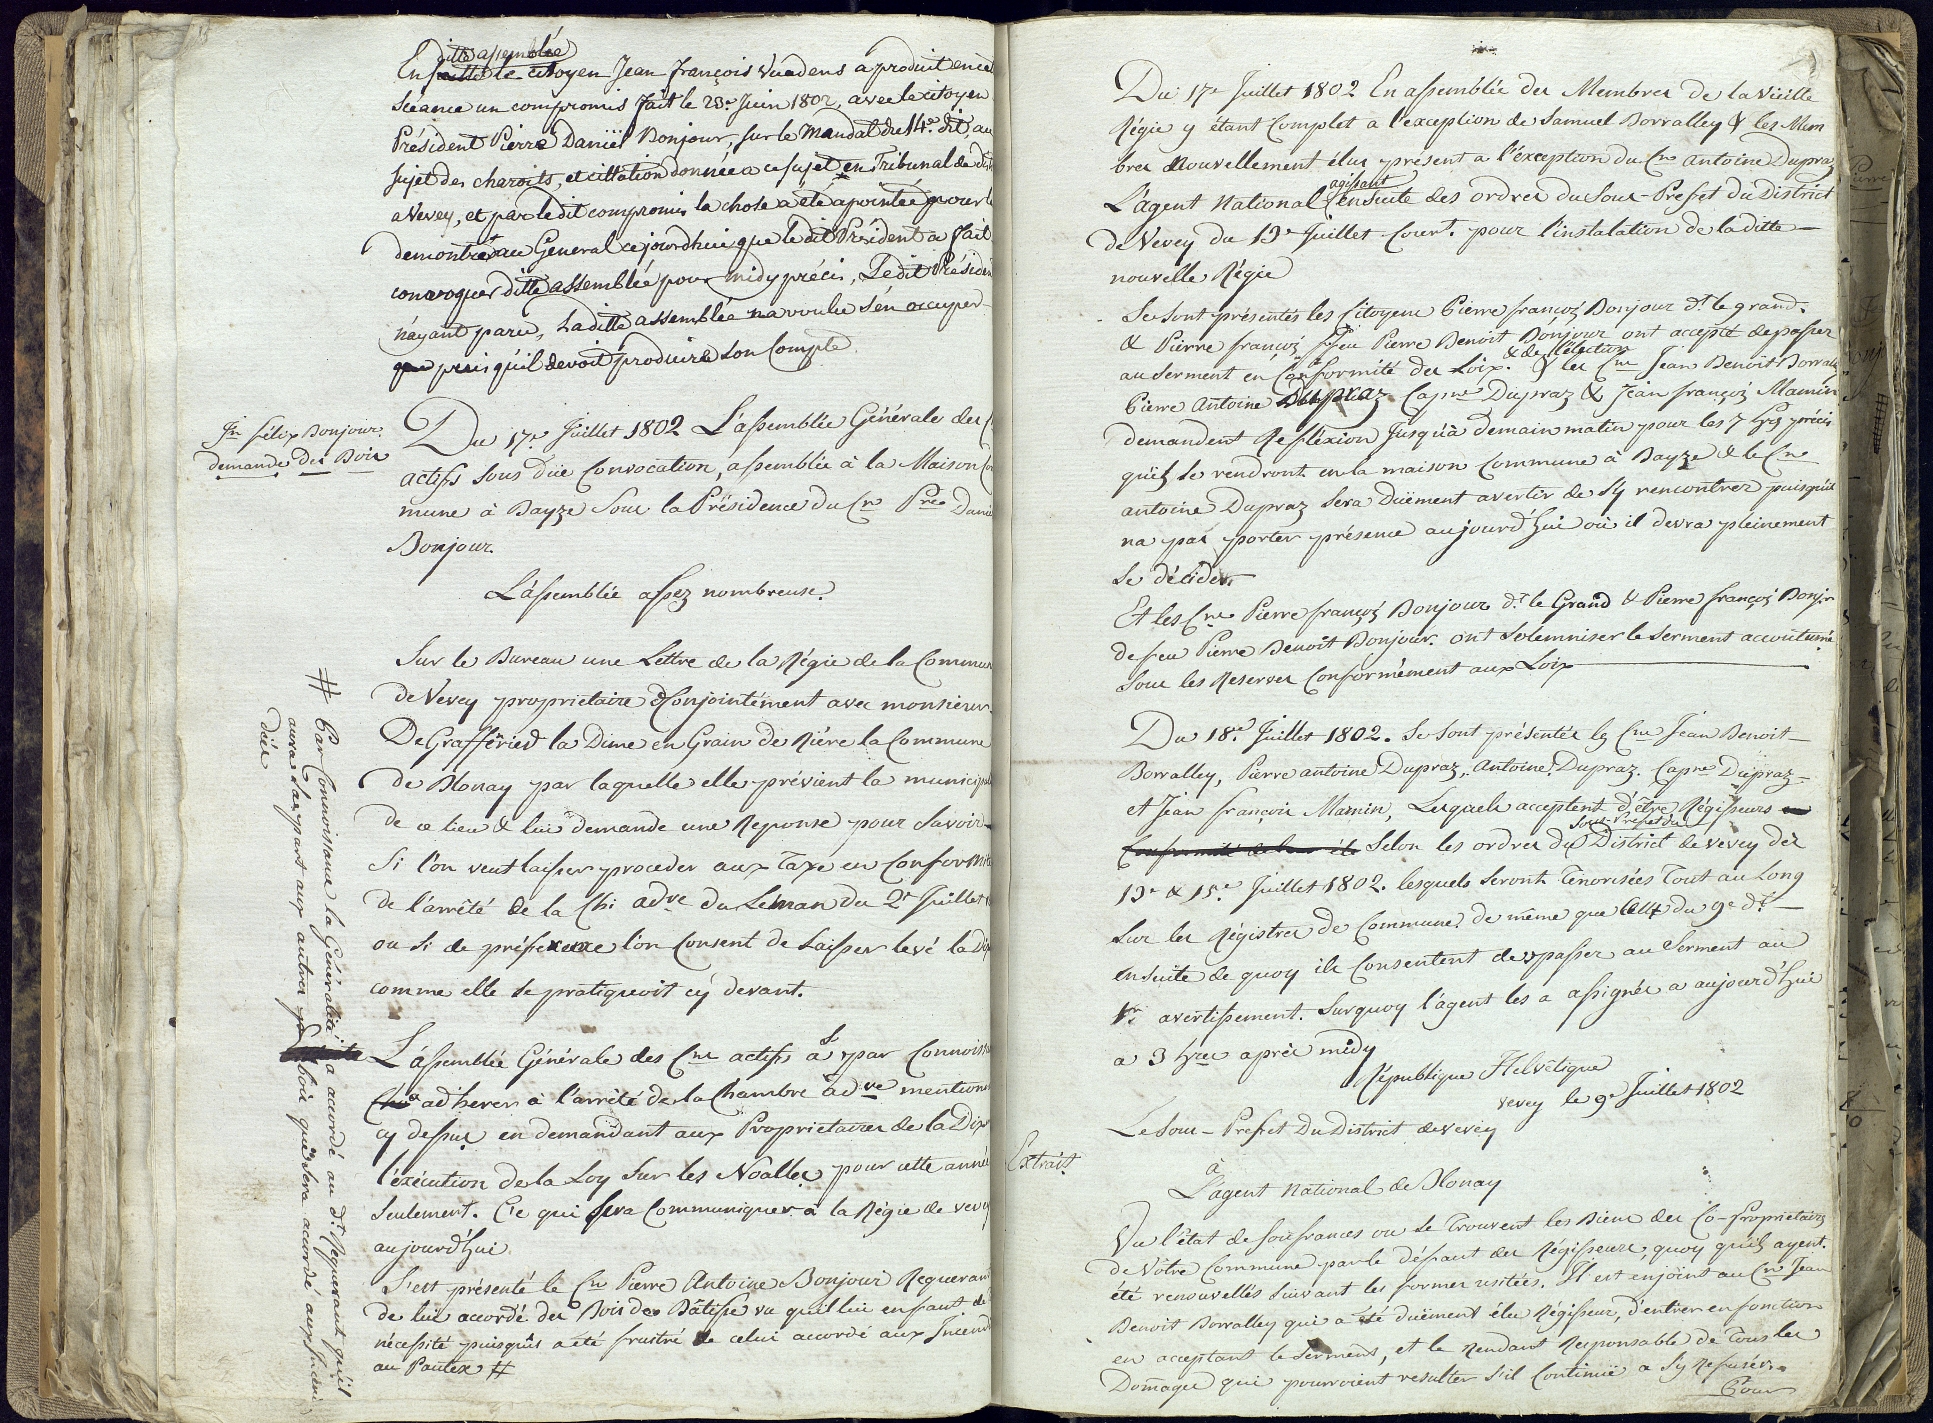 ditte assemblée
Ensuitte le citoyen Jean François Vuadens a produit en cet
Sceance un compromis fait le 23e Juin 1802, avec le citoyen
Président Pierre Daniël Bonjour, sur le Mandat du 14e dit, au
sujet des charoits, et cittation donnée a ce sujet en Tribunal de dist
a Vevey, et par le dit compromis la chose a été apointée pour
demontré au General ce jourdhui que le dit Président a fait
convoquer ditte assemblée pour midy précis, Le dit Président
n'ayant paru, La ditte assemblée na voulu s'én occuper
puis qu'il devoit produire Son Compte
Jn félix Bonjour.
demande des Bois
Du 17e Juillet 1802 L'assemblée Générale des C
actifs sous düe Convocation, assemblée à la Maison Com
mune à Bayze sous la Présidence du Cn Pre Daniel
Bonjour.
L'assemblée assez nombreuse.
Sur le Bureau une Lettre de la Régie de la Commune
de Vevey proprietaire Conjointément avec monsieur
De Graffenried la Dime en Grain de Riére la Commune
de Blonay par laquelle elle prévient la municipalité
de ce lieu & lui demande une Reponse pour Savoir
Si l'on veut laisser proceder aux Taxe en Conformité
de l'arrêté de la Ch: adve du Léman du 2e Juillet
ou si de préference l'on Consent de Laisser levé la Dix
comme elle se pratiquoit cy devant.
L'assemblée Générale des Cns actifs à par Connoiss
adherer à l'arrêté de la Chambre adve mentionné
cy dessus en demandant aux Proprietaires de la Dixme
l'éxécution de la Loy sur les Noalles pour cette année
Seulement. Ce qui sera Communiquer à la Régie de Vevey
aujourd'hui
S'est présenté le Cn Pierre Antoine Bonjour Requerant
de lui accordé des Bois de Bâtisse vu qu'il lui en faut de
nécessité puisqu'il a été frustré de celui accordé aux Incend
au Pautex #
# Par Connoissance la Généralité a accordé au dt Requerant qu'il
aura sa part aux autres bois qui sera accordé aux Incen
diés
Du 17e Juillet 1802 En assemblée des Membres de la vieille
Régie y étant Complet a l'exception de Samuel Borralley & les Mem
bres Nouvellement élus présent a l'éxception du Cn Antoine Dupraz
L'agent National agissant ensuite des ordres du Sous-Prefet du District
de Vevey du 13e Juillet Court. pour l'instalation de la ditte
nouvelle Régie
Se sont présentés les Citoyens Pierre françoį Bonjour dt le grand.
& Pierre françoį feu Pierre Benoit Bonjour ont accepté de passer
au Serment en Conformité des Loix. & de l'élection & les Cns Jean Benoit Borralley
Pierre Antoine Dupraz Capne Dupraz & Jean françoį Mamin
demandent Refléxion Jusqu'à demain matin pour les 7 hres précis
qu'ils se rendront en la maison Commune à Bayze & le Cn
antoine Dupraz Sera Duëment avertir de S'y rencontrer puisqu'il
na pas porter présence aujourd'hui où il devra pleinement
se décider
Et les Cns Pierre françoį Bonjour dt le Grand & Pierre françoį Bonjr
de feu Pierre Benoit Bonjour. ont Solemniser le Serment accoutumé
sous les Reserves Conformément aux Loix
Du 18e Juillet 1802. Se sont présentés les Cns Jean Benoit
Borralley, Pierre antoine Dupraz, Antoine Dupraz. Capne Dupraz
et Jean françois Mamin, Lesquels acceptent d'être Régisseurs
Selon les ordres du Sous-Prefet du District de Vevey des
13e & 15e Juillet 1802. lesquels seront Tenorisées Tout au Long
sur les Régistres de Commune de même que celle du 9e dt
ensuite de quoy ils Consentent de passer au Serment au
1er avertissement. Surquoy l'agent les a assignés a aujourd'hui
a 3 hres après midy
République Helvétique
Vevey le 9e Juillet 1802
Le Sous-Prefet Du District de Vevey
Extrait
à
L'agent National de Blonay
Vu l'état de soufrances ou se Trouvent les Biens des Co-proprietaires
de Vôtre Commune par le défaut des Régisseurs, quoy qu'ils ayent
été renouvellés suivant les formes usitées. Il est enjoint au Cn Jean
Benoit Borralley qui a été duëment élu Régisseur, d'entrer en fonction
en acceptant le Serment, et le Rendant Responsable de Tous les
Domages qui pourroient resulter s'il Continüe a S'y Refusér.
Pour